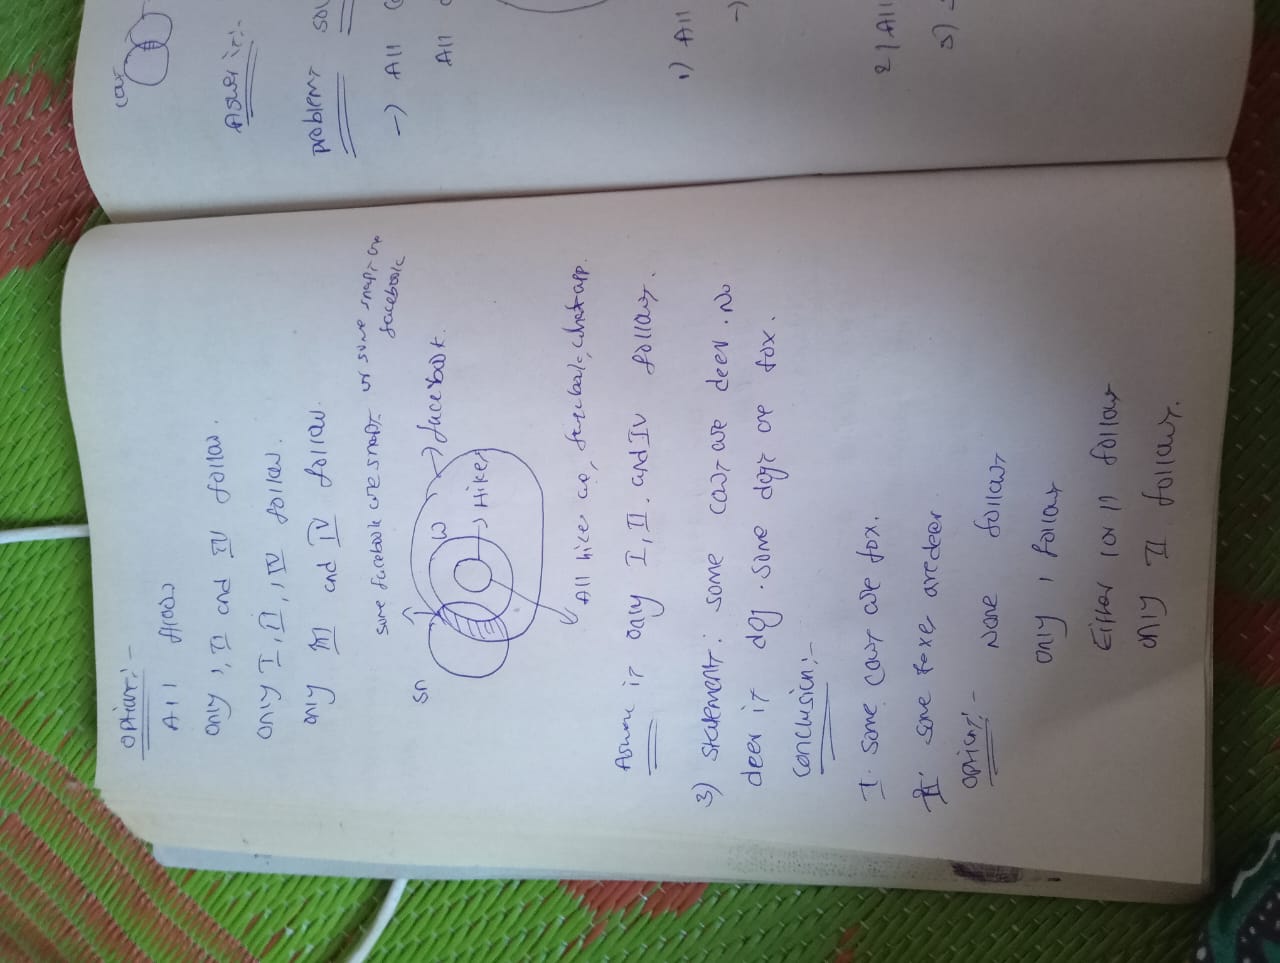 option:-
All follow
only I, II and IV follow.
only I, II, IV follow.
only III and IV follow.
some facebook are snapt or some snapt are
facebook
Sn
W
→ facebook.
→ Hike
All hike are, facebook, whatapp.
Answer is only I, II, and IV follow.
3) statement: some cats are deer. No
deer is dog. some dogs are fox.
conclusion:-
I. some cats are fox.
II. some foxes are deer
option:- None follow
only I follow
Either I or II follow
only II follow.
cat
Answer is:-
problem
-) All
All
1) All
-)
2) All
3)